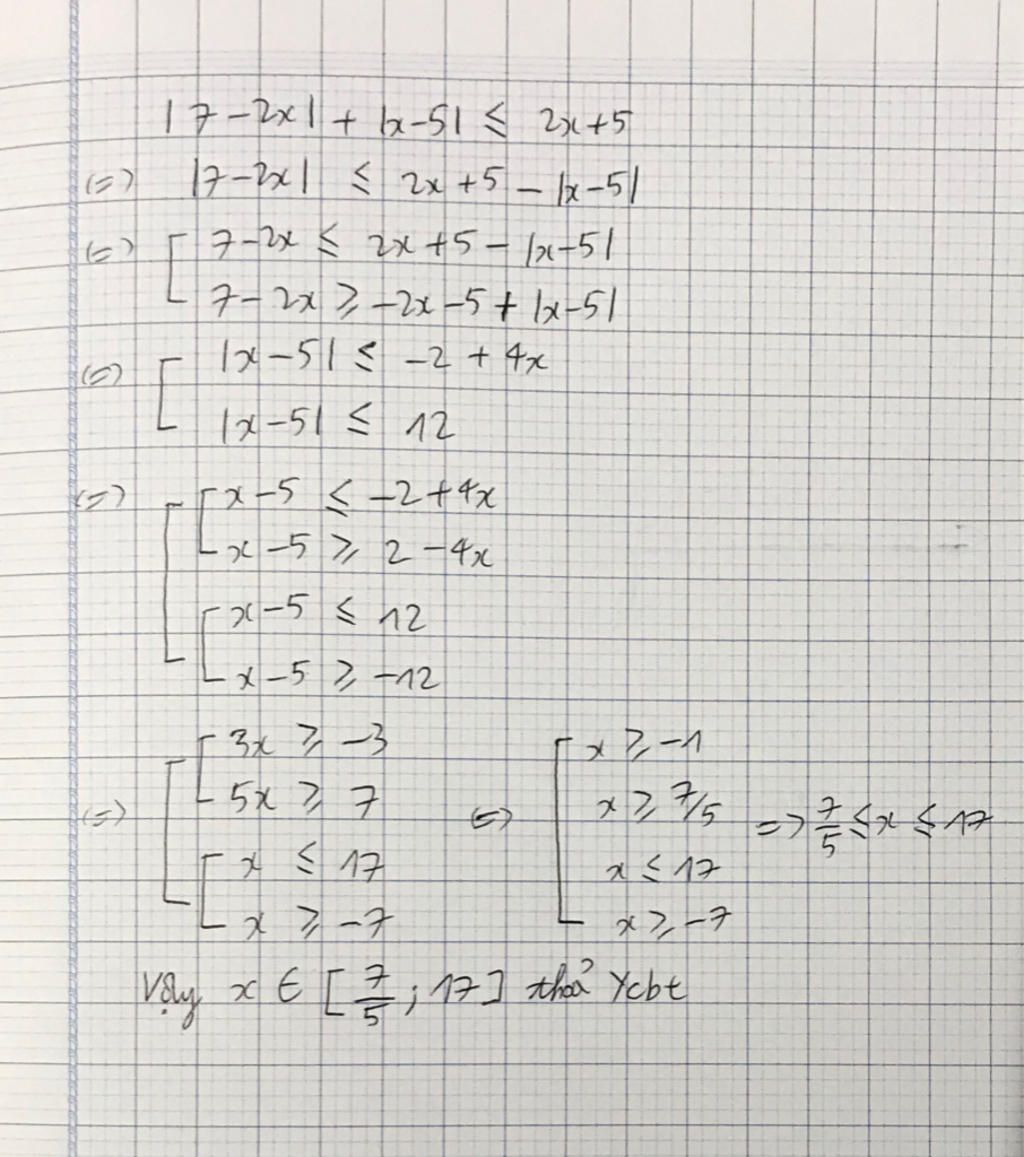 |7-2x| + |x-5| ≤ 2x+5
(=) |7-2x| ≤ 2x+5 - |x-5|
(=) [ 7-2x ≤ 2x+5 - |x-5|
7-2x ⩾ -2x-5 + |x-5|
(=) [ |x-5| ≤ -2 + 4x
|x-5| ≤ 12
(=) [ [ x-5 ≤ -2+4x
x-5 ⩾ 2-4x
[ x-5 ≤ 12
x-5 ⩾ -12
(=) [ [ 3x ⩾ -3 (=) [ x ⩾ -1
5x ⩾ 7 x ⩾ 7/5 => 7/5 ≤ x ≤ 17
[ x ≤ 17 x ≤ 17
x ⩾ -7 x ⩾ -7
Vậy x ∈ [7/5 ; 17] thoả Ycbt